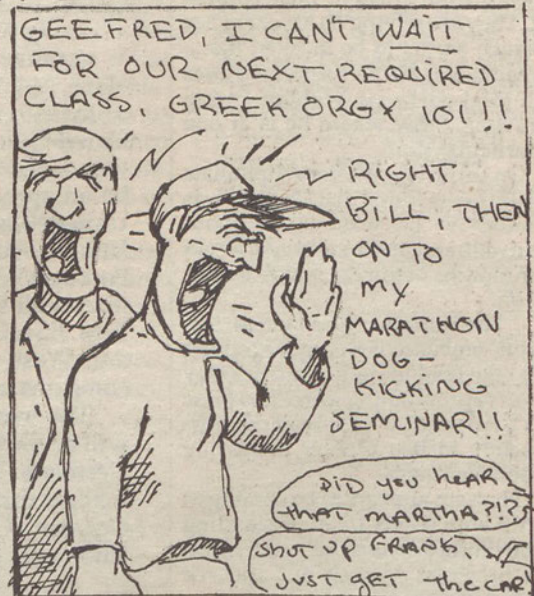 GEE FRED, I CAN'T WAIT
FOR OUR NEXT REQUIRED
CLASS, GREEK ORGY 101!!
RIGHT
BILL, THEN
ON TO
MY
MARATHON
DOG-
KICKING
SEMINAR!!
DID YOU HEAR
THAT MARTHA?!?
SHUT UP FRANK,
JUST GET THE CAR!